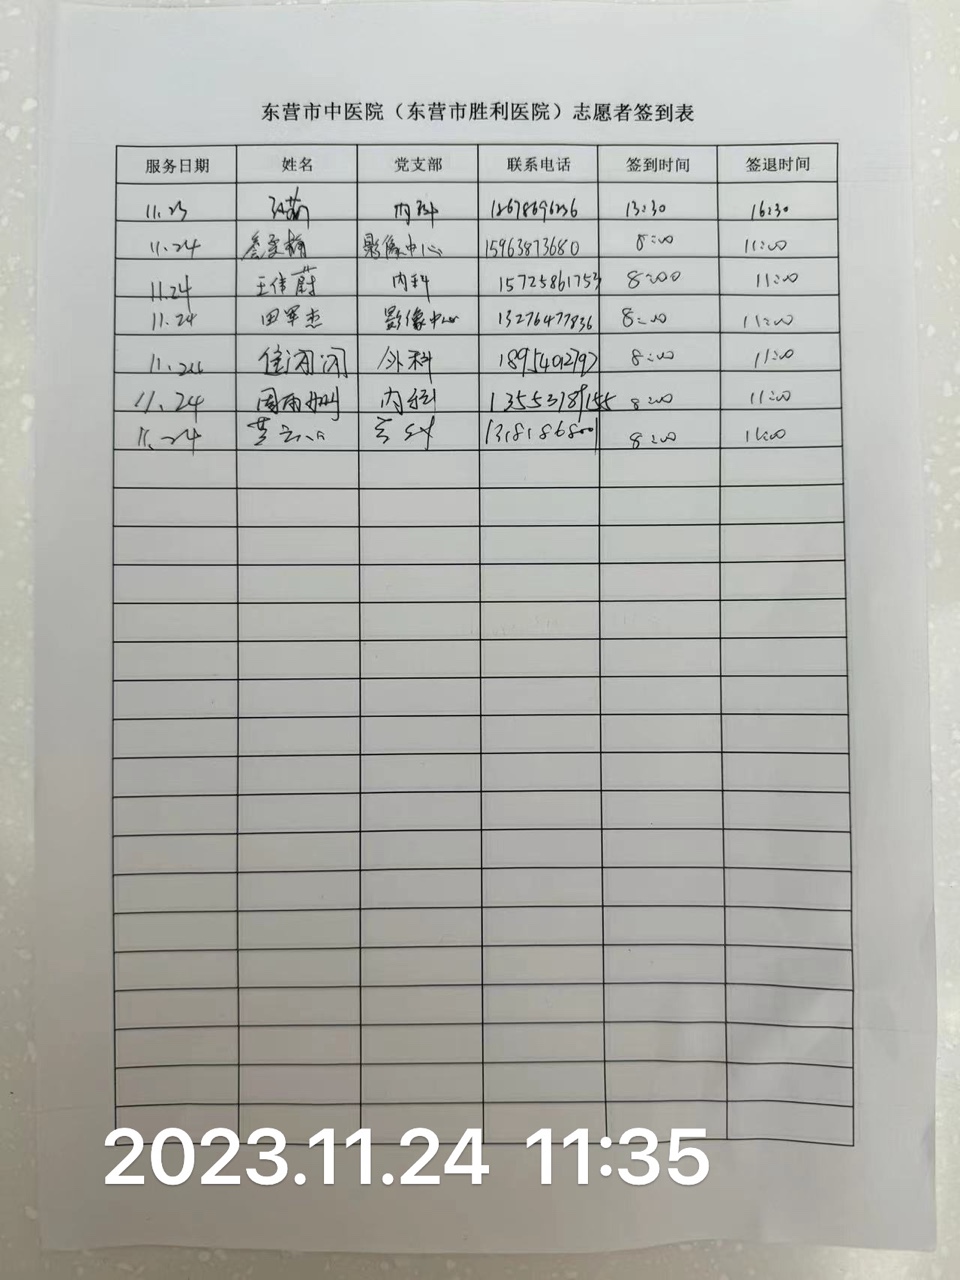 东营市中医院（东营市胜利医院）志愿者签到表
服务日期 姓名 党支部 联系电话 签到时间 签退时间
11.23 内科 13:30 16:30
11.24 影像中心 15963873680 8:00 11:00
11.24 王伟蔚 内科 15725861753 8:00 11:00
11.24 田军杰 影像中心 13276477836 8:00 11:00
11.24 外科 18954012797 8:00 11:00
11.24 周雨 内科 13553789155 8:00 11:00
11.24 8:00 11:00
2023.11.24 11:35